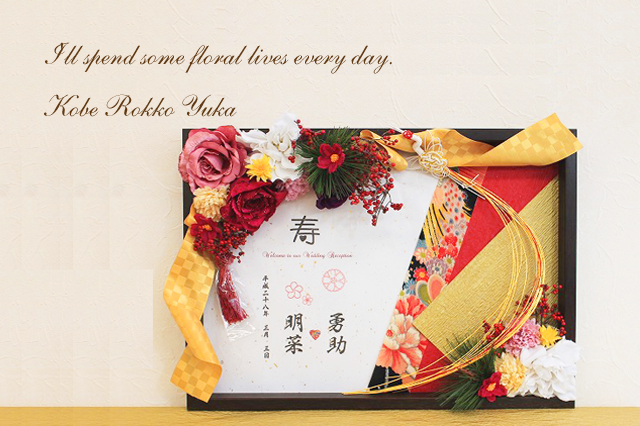 I'll spend some floral lives every day.
Kobe Rokko Yuka
寿
Welcome to our Wedding Reception
平成二十八年 三月 三日
勇助
明菜